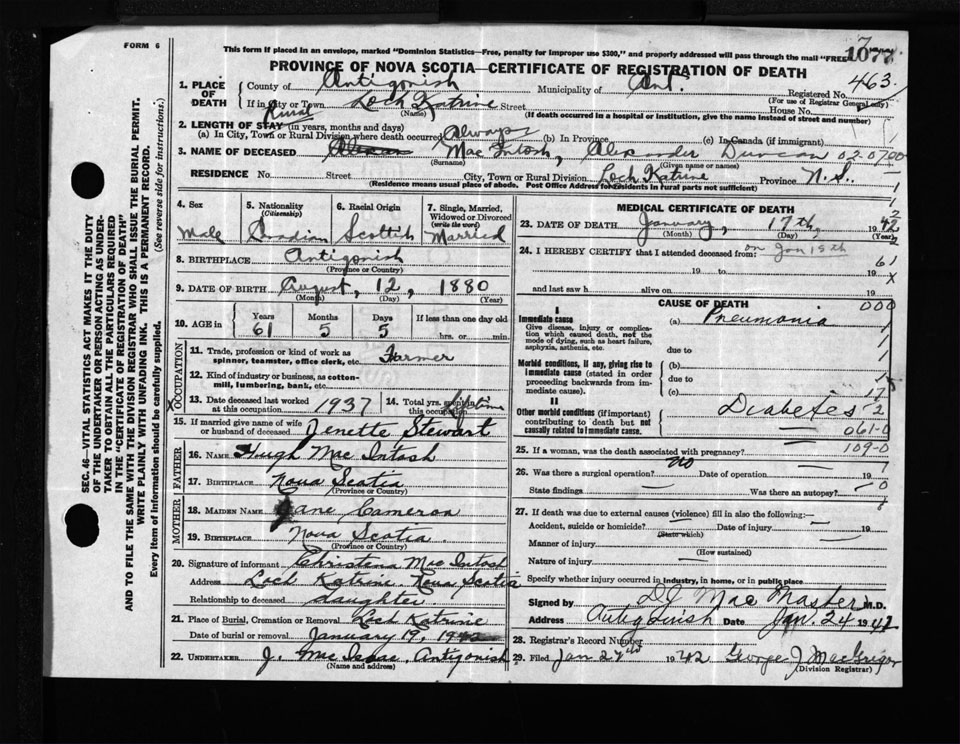 FORM 6
This form if placed in an envelope, marked "Dominion Statistics—Free, penalty for improper use $300," and properly addressed will pass through the mail "FREE"
7
1077
PROVINCE OF NOVA SCOTIA—CERTIFICATE OF REGISTRATION OF DEATH
1. PLACE OF DEATH
County of Antigonish Municipality of Ant. Registered No. 463
(For use of Registrar General only)
If in City or Town Loch Katrine Street House No.
Rural (Name) (If death occurred in a hospital or institution, give the name instead of street and number)
2. LENGTH OF STAY (in years, months and days)
(a) In City, Town or Rural Division where death occurred Always (b) In Province (c) In Canada (if immigrant)
3. NAME OF DECEASED Mac Intosh, Alexander Duncan 02-0700
(Surname) (Given name or names)
RESIDENCE No. Street City, Town or Rural Division Loch Katrine Province N. S.
(Residence means usual place of abode. Post Office Address for residents in rural parts not sufficient)
4. Sex Male
5. Nationality (Citizenship) Canadian
6. Racial Origin Scottish
7. Single, Married, Widowed or Divorced (write the word) Married
8. BIRTHPLACE Antigonish
(Province or Country)
9. DATE OF BIRTH August, 12, 1880
(Month) (Day) (Year)
10. AGE in Years Months Days If less than one day old
61 5 5 hrs. or min.
OCCUPATION
11. Trade, profession or kind of work as spinner, teamster, office clerk, etc. Farmer
12. Kind of industry or business, as cotton-mill, lumbering, bank, etc.
13. Date deceased last worked at this occupation 1937
14. Total yrs. spent in this occupation Lifetime
15. If married give name of wife or husband of deceased Jenette Stewart
FATHER
16. NAME Hugh Mac Intosh
17. BIRTHPLACE Nova Scotia
(Province or Country)
MOTHER
18. MAIDEN NAME Jane Cameron
19. BIRTHPLACE Nova Scotia
(Province or Country)
20. Signature of informant Christena Mac Intosh
Address Loch Katrine Nova Scotia
Relationship to deceased daughter
21. Place of Burial, Cremation or Removal Loch Katrine
Date of burial or removal January 19, 1942
22. UNDERTAKER J. Mac Isaac, Antigonish
(Name and address)
MEDICAL CERTIFICATE OF DEATH
23. DATE OF DEATH January, 17th, 1942
(Month) (Day) (Year)
24. I HEREBY CERTIFY that I attended deceased from: on Jan 15th
19 to 19
and last saw h alive on 19
61
x
CAUSE OF DEATH
000
I
Immediate cause
Give disease, injury or complication which caused death, not the mode of dying, such as heart failure, asphyxia, asthenia, etc.
(a) Pneumonia
due to
Morbid conditions, if any, giving rise to immediate cause (stated in order proceeding backwards from immediate cause).
(b)
due to
(c)
17
II
Other morbid conditions (if important) contributing to death but not causally related to immediate cause.
Diabetes 2
061-0
25. If a woman, was the death associated with pregnancy? 109-0
26. Was there a surgical operation? no Date of operation 19
State findings Was there an autopsy?
27. If death was due to external causes (violence) fill in also the following:—
Accident, suicide or homicide? Date of injury 19
(State which)
Manner of injury
(How sustained)
Nature of injury
Specify whether injury occurred in industry, in home, or in public place
Signed by DJ Mac Master M.D.
Address Antigonish Date Jan. 24 1942
28. Registrar's Record Number
29. Filed Jan 27th 1942 George J MacGregor
(Division Registrar)
SEC. 46—VITAL STATISTICS ACT MAKES IT THE DUTY
OF THE UNDERTAKER OR PERSON ACTING AS UNDERTAKER TO OBTAIN ALL THE PARTICULARS REQUIRED
IN THE "CERTIFICATE OF REGISTRATION OF DEATH"
AND TO FILE THE SAME WITH THE DIVISION REGISTRAR WHO SHALL ISSUE THE BURIAL PERMIT.
WRITE PLAINLY WITH UNFADING INK. THIS IS A PERMANENT RECORD.
Every item of Information should be carefully supplied. (See reverse side for instructions.)